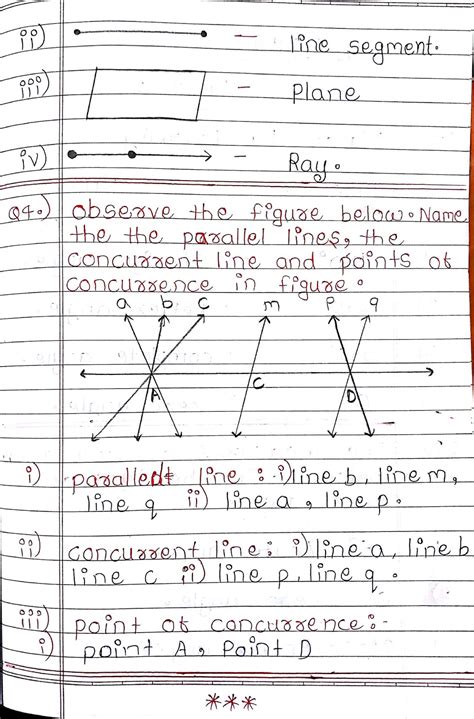 ii) — line segment.
iii) — Plane
iv) — Ray.
Q4.) Observe the figure below. Name
the the parallel lines, the
concurrent line and points of
concurrence in figure.
a b c m p q
A C D
i) parallel line : i) line b, line m,
line q ii) line a, line p.
ii) concurrent line: i) line a, line b
line c ii) line p, line q.
iii) point of concurrence:-
i) point A, Point D
***